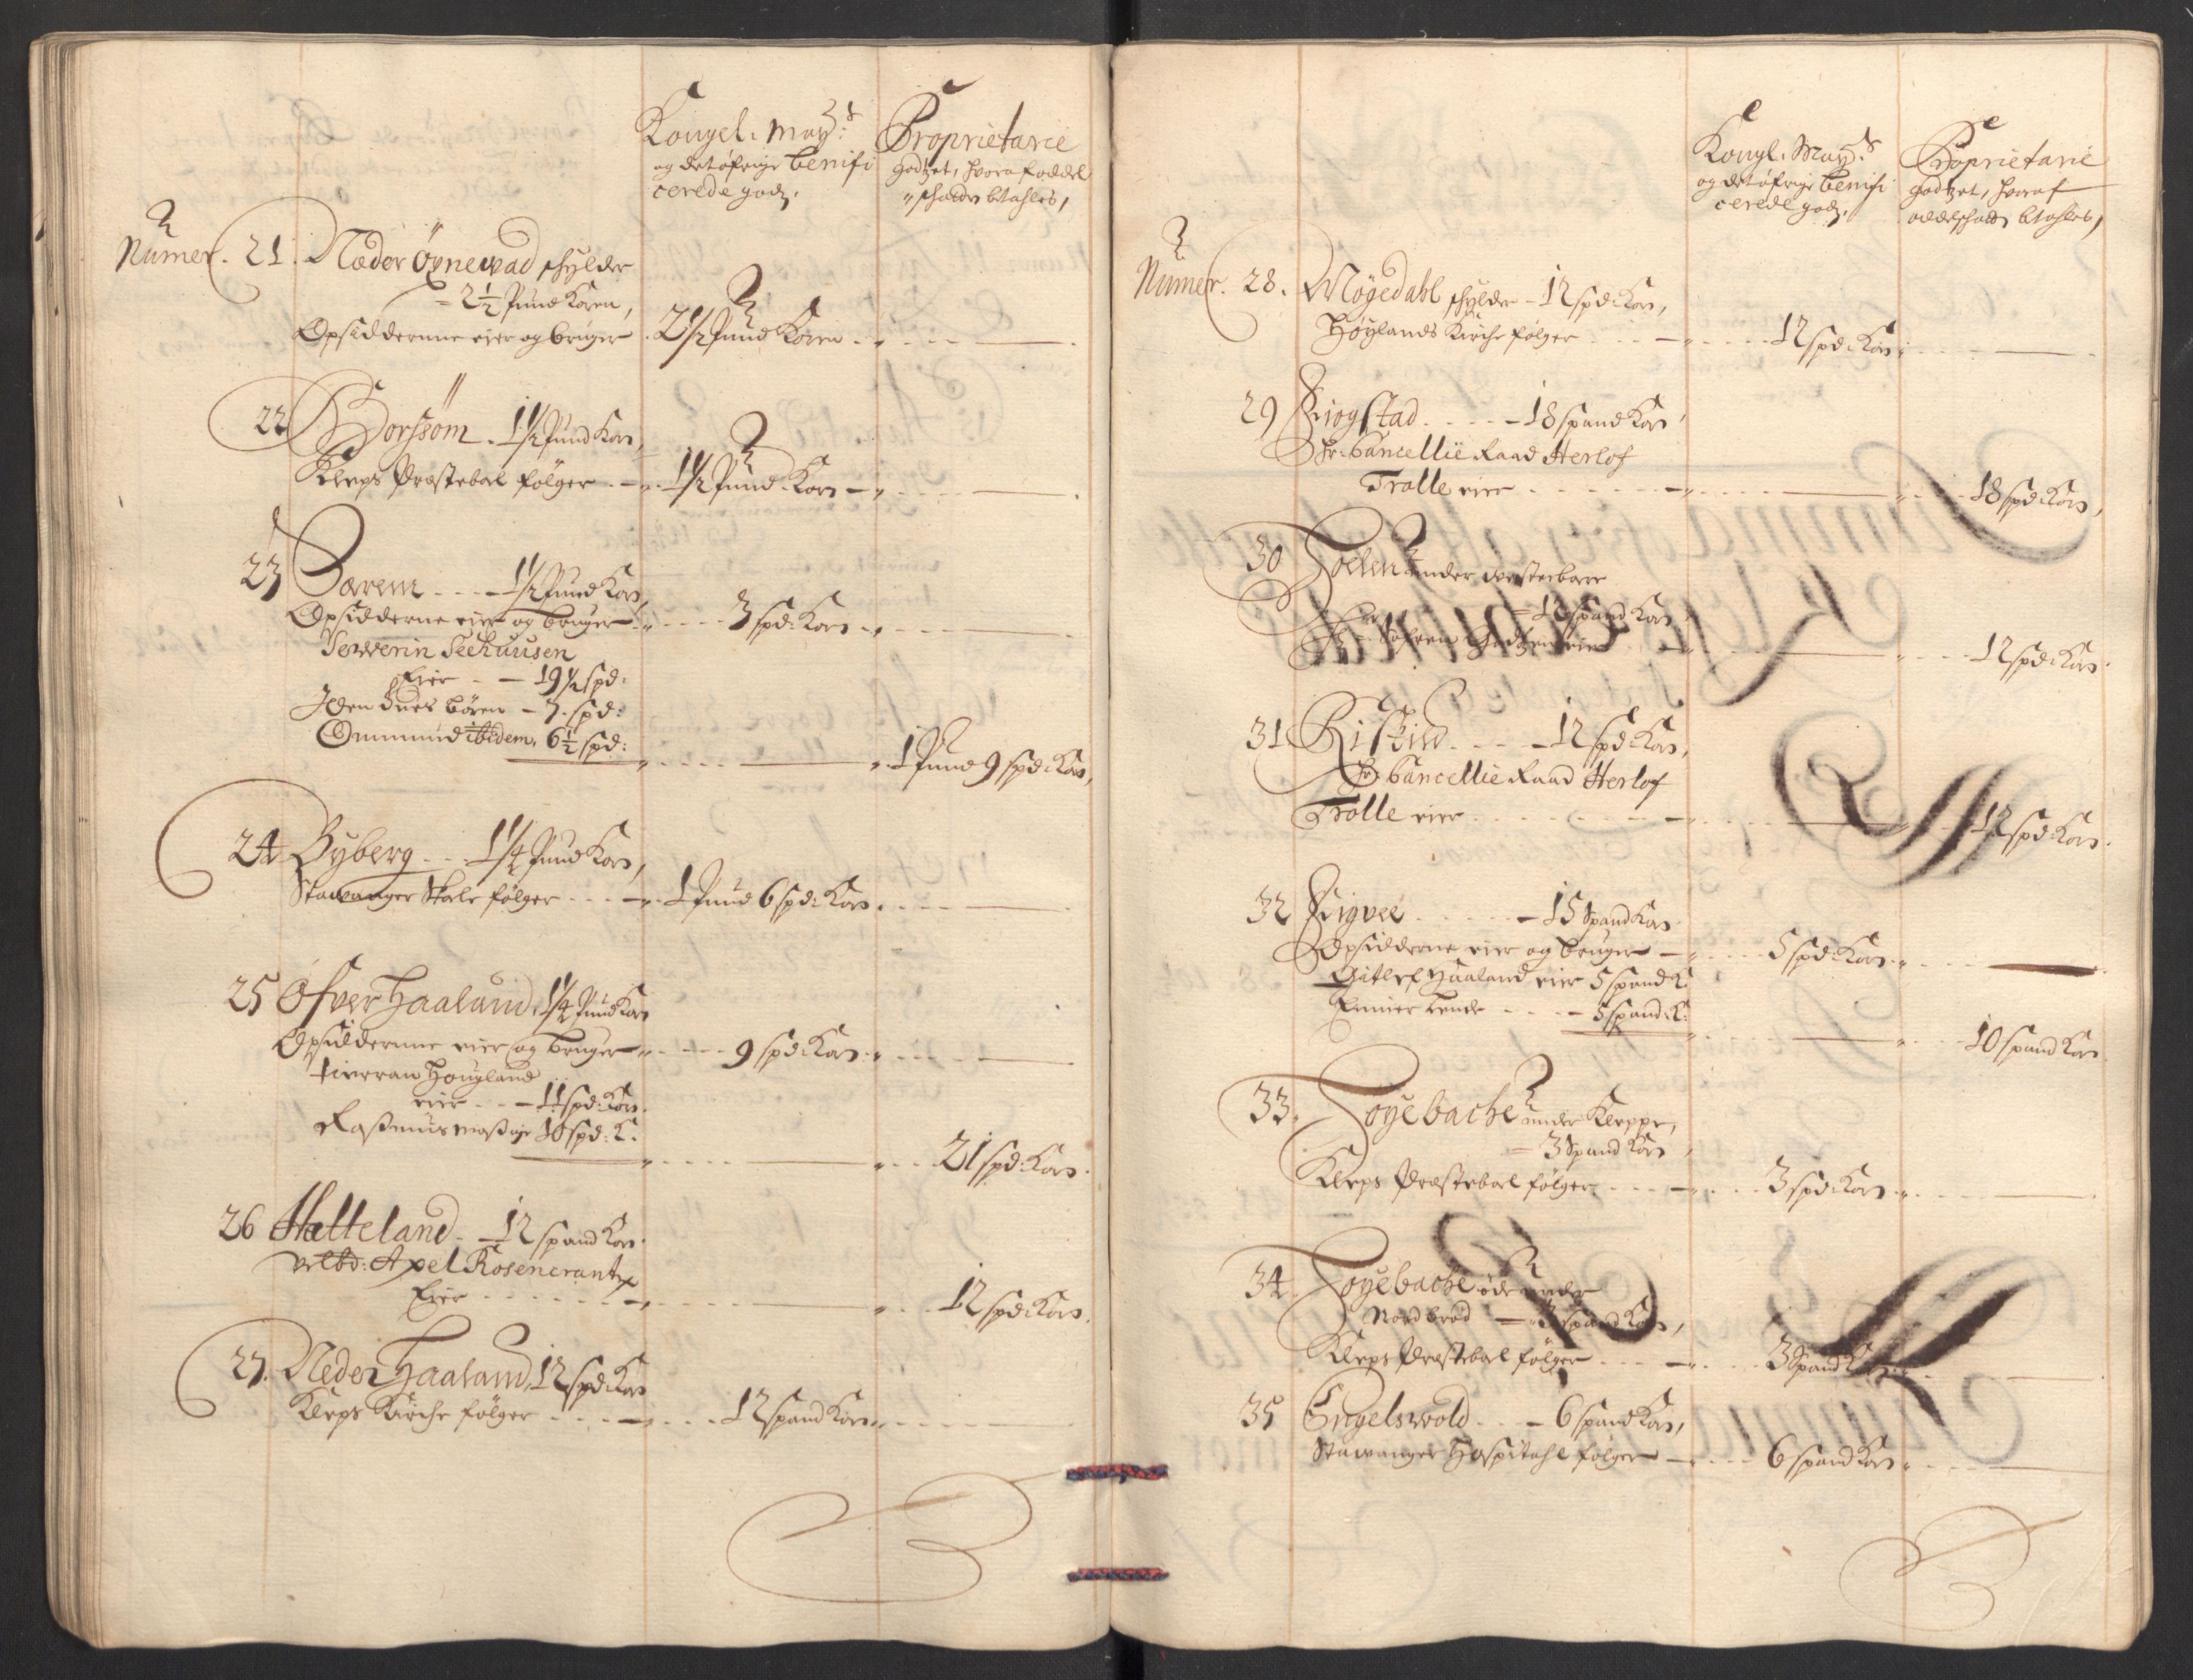 Kongel: May:s
og det öfrige benifi
cerede godz,
Proprietarie
godtzet, hvoraf oddel
„schatter btahles,
Numer. 21. Næder Öÿnewad schylder
- 2½ Pund Koren,
Opsidderne eier og bruger . 2½ Pund Koren
22 Borssöm . 1½ Pund Korn,
Kleps Præstebol følger - 1½ Pund Korn
23 Særem - 1½ Pund Korn,
Opsidderne eier og bruger - 3 spd: Korn
Severin Seehuusen
Eier - 19½ spd:
Iden bören - 7. spd:
Ommund ibidem, 6½ spd:
1 Pund 9 spd: Korn,
24 Byberg - 1¼ Pund Korn,
Stawanger Skole følger - 1 Pund 6 spd: Korn.
25 Öfver Haaland, 1¼ Pund Korn
Opsidderne eier og bruger - 9 spd: Korn
Haugland
eier - 11 spd: Korn.
Rassmus 10 spd: K.
21 spd: Korn.
26 Hatteland - 12 spand Korn.
velbd: Axel Rosencrantz
Eier - 12 spd: Korn.
27. Neder Haaland, 12 spd: Korn
Kleps Kirche følger - 12 spand Korn
Kongl. May:s
og det öfrige benifi
cerede godz.
Proprietarie
godtzet, hvoraf
oddelschatt btahles,
Numer. 28. Mögedahl schylder - 12 spd: Korn,
Höylands Kirche følger - 12 spd: Korn
29 Siogstad - 18 spand Korn
Hr: Cancellie Raad Herlof
Trolle eier - 18 spd: Korn,
30 under
- 12 spand Korn
Hr: Sören Godtzen eier - 12 spd: Korn.
31 - 12 spd: Korn,
Hr: Cancellie Raad Herlof
Trolle eier - 12 spd: Korn.
32 - 15 Spand Korn
Opsidderne eier og bruger - 5 spd: Korn
Haaland eier 5 spand K.
Einner - 5 spand: K:
10 spand Korn.
33. Toÿebache under Kleppe,
- 3 Spand Korn,
Kleps Præstebol følger - 3 spd: Korn
34. Toÿebache öde under
Nordbrød - 3 spand Korn,
Kleps Præstebol følger - 3 Spand Korn
35 Engelswold - 6 spand Korn,
Stawanger Hospitahl følger - 6 spand Korn